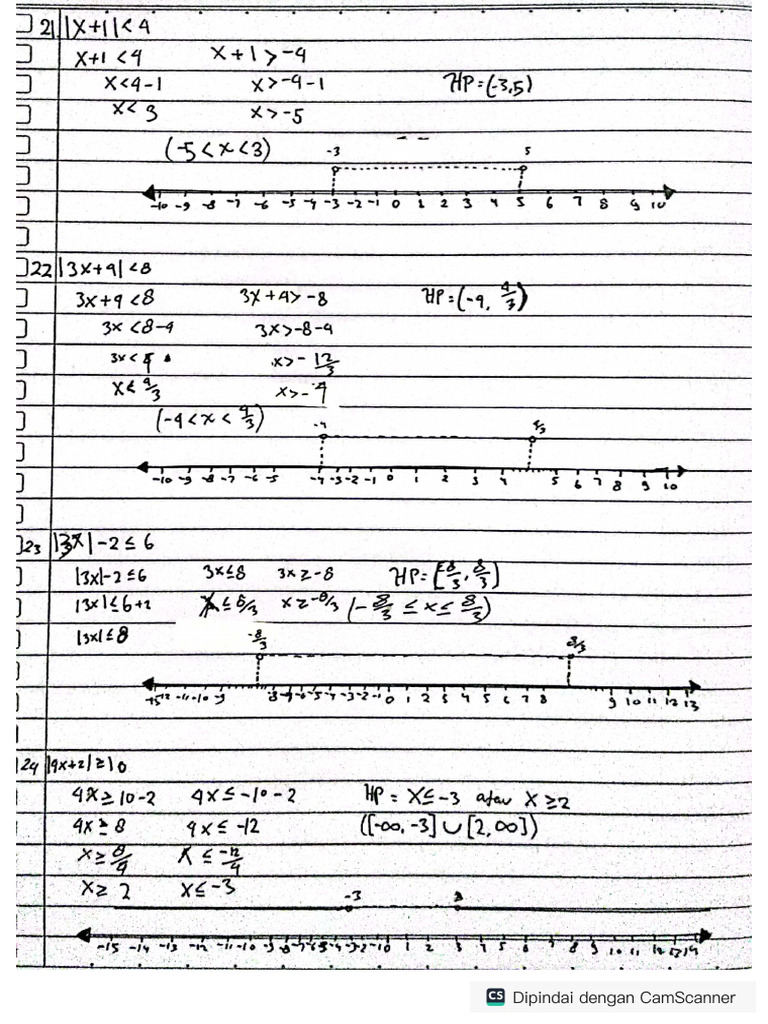 21 |x+1| < 4
x+1 < 4 x+1 > -4
x < 4-1 x > -4-1 HP = (-3,5)
x < 3 x > -5
(-5 < x < 3) -3 5
-10 -9 -8 -7 -6 -5 -4 -3 -2 -1 0 1 2 3 4 5 6 7 8 9 10
22 |3x+4| < 8
3x+4 < 8 3x+4 > -8 HP = (-4, 4/3)
3x < 8-4 3x > -8-4
3x < 4 x > - 12/3
x < 4/3 x > -4
(-4 < x < 4/3) -4 4/3
-10 -9 -8 -7 -6 -5 -4 -3 -2 -1 0 1 2 3 4 5 6 7 8 9 10
23 |3x| - 2 ≤ 6
|3x| - 2 ≤ 6 3x ≤ 8 3x ≥ -8 HP = [-8/3, 8/3]
|3x| ≤ 6+2 x ≤ 8/3 x ≥ -8/3 (-8/3 ≤ x ≤ 8/3)
|3x| ≤ 8 -8/3 8/3
-11 -10 -9 -8 -7 -6 -5 -4 -3 -2 -1 0 1 2 3 4 5 6 7 8 9 10 11 12 13
24 |4x+2| ≥ 10
4x ≥ 10-2 4x ≤ -10-2 HP = x ≤ -3 atau x ≥ 2
4x ≥ 8 4x ≤ -12 ([-∞, -3] ∪ [2, ∞])
x ≥ 8/4 x ≤ -12/4
x ≥ 2 x ≤ -3 -3
-15 -14 -13 -12 -11 -10 -9 -8 -7 -6 -5 -4 -3 -2 -1 0 1 2 3 4 5 6 7 8 9 10 11 12 13 14
CS Dipindai dengan CamScanner